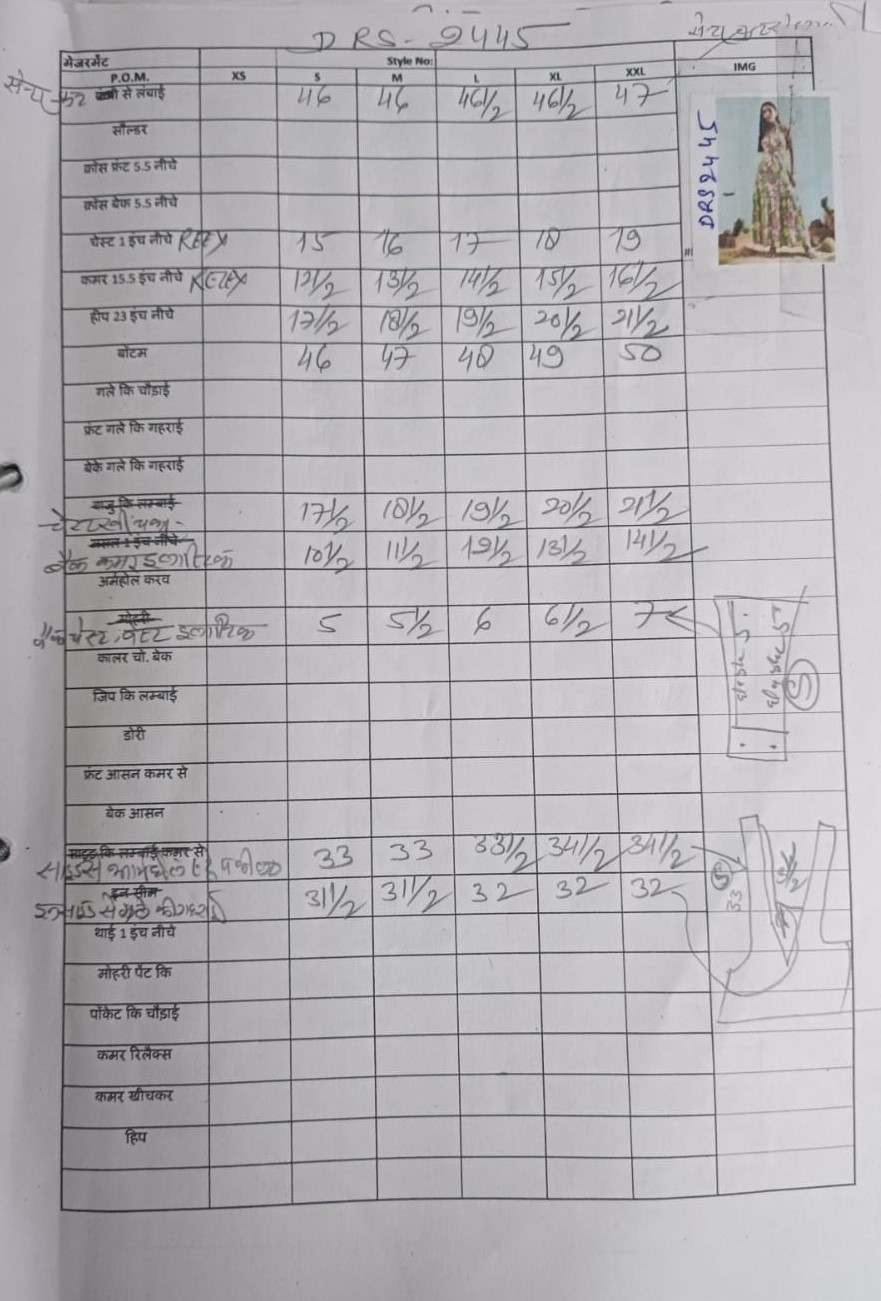 DRS-2445
मेजरमेंट Style No:
P.O.M. XS S M L XL XXL IMG
सेन्टर फ्रंट से लंबाई 46 46 46 1/2 46 1/2 47
DRS2445
सोल्डर
क्रोस फ्रंट 5.5 नीचे
क्रोस बेक 5.5 नीचे
चेस्ट 1 इंच नीचे RELEX 15 16 17 18 19
कमर 15.5 इंच नीचे RELEX 12 1/2 13 1/2 14 1/2 15 1/2 16 1/2
हीप 23 इंच नीचे 17 1/2 18 1/2 19 1/2 20 1/2 21 1/2
बोटम 46 47 48 49 50
गले कि चौड़ाई
फ्रंट गले कि गहराई
बेक गले कि गहराई
बाजु कि लम्बाई
चेस्ट खींचकर 17 1/2 18 1/2 19 1/2 20 1/2 21 1/2
मसल 1 इंच नीचे
बैक कमर इलास्टिक 10 1/2 11 1/2 12 1/2 13 1/2 14 1/2
अर्महोल करव
मोहरी
बैक चेस्ट इलास्टिक 5 5 1/2 6 6 1/2 7
कालर चो. बेक
जिप कि लम्बाई
डोरी
फ्रंट आसन कमर से
बेक आसन
साइड कि लम्बाई कमर से
साइड से आर्महोल 33 33 33 1/2 34 1/2 34 1/2
इन सीम
31 1/2 31 1/2 32 32 32
S
33
थाई 1 इंच नीचे
मोहरी पेंट कि
पॉकेट कि चौड़ाई
कमर रिलैक्स
कमर खीचकर
हिप